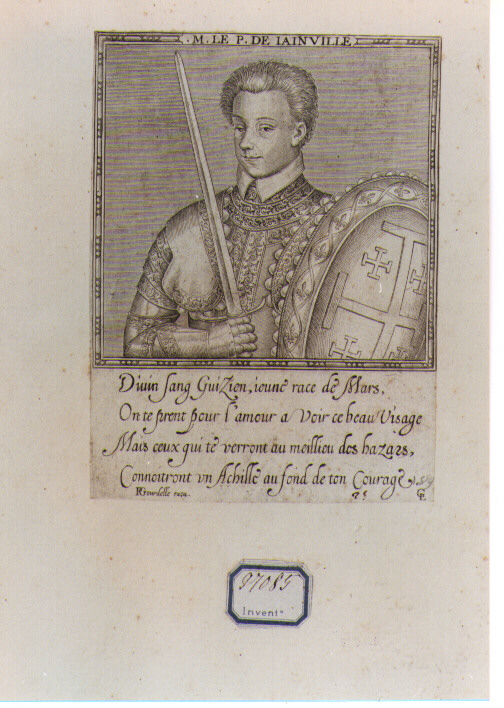 · M. LE P. DE IAINVILLE
Diuin sang Guizien, ieune race de Mars,
On te prent pour l'amour a voir ce beau Visage
Mais ceux qui te verront au meillieu des hazars,
Connoitront vn Achille au fond de ton Courage
PGourdelle excu.
37085
Invent.e